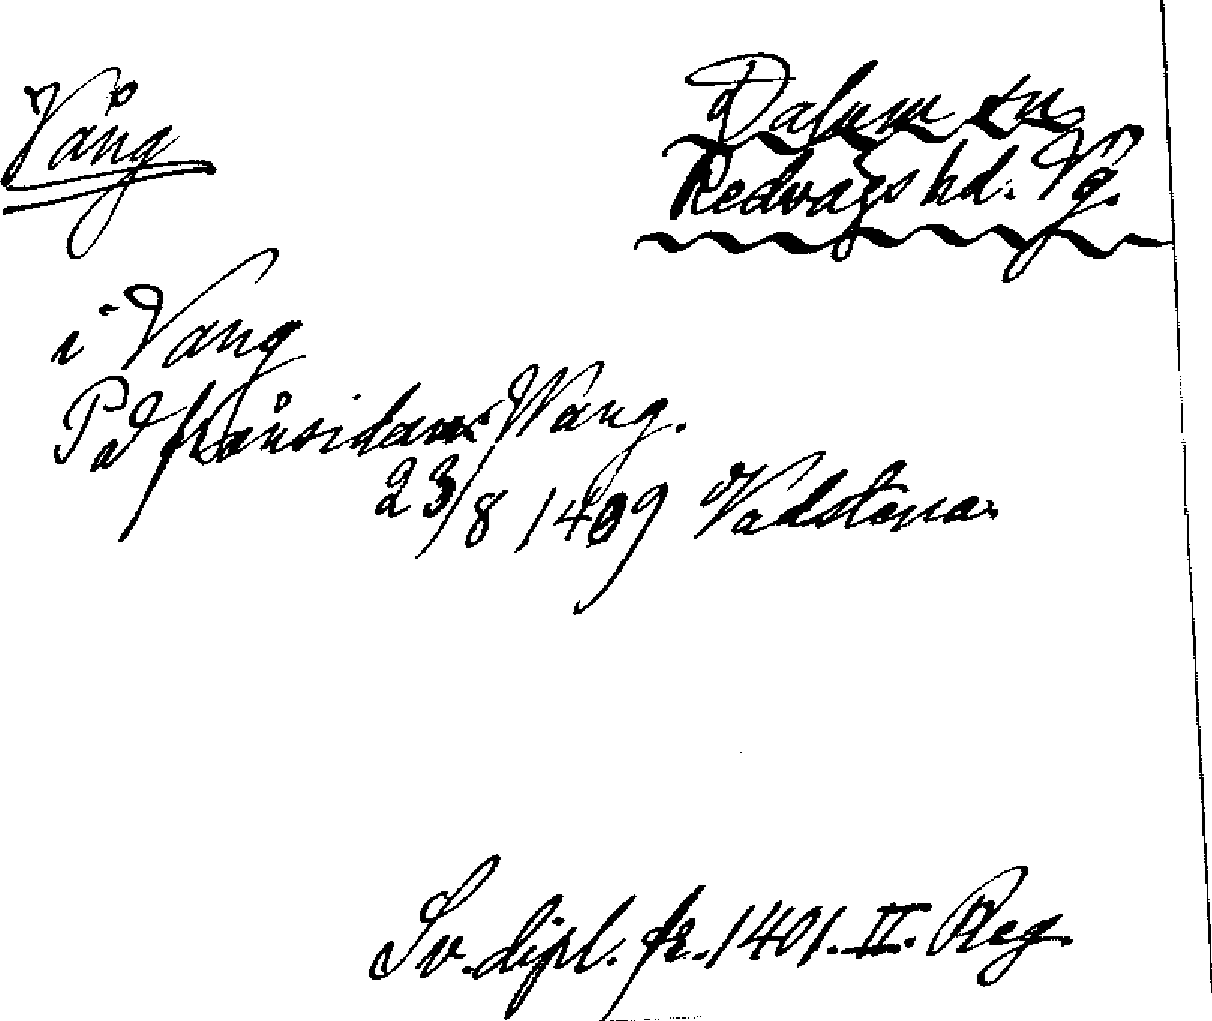 Vång
Dalum sn
Redvägs hd. Vg.
i Vang
På frånsidan: Wang.
23/8 1409 Vadstena.
Sv. dipl. fr. 1401. II. Reg.